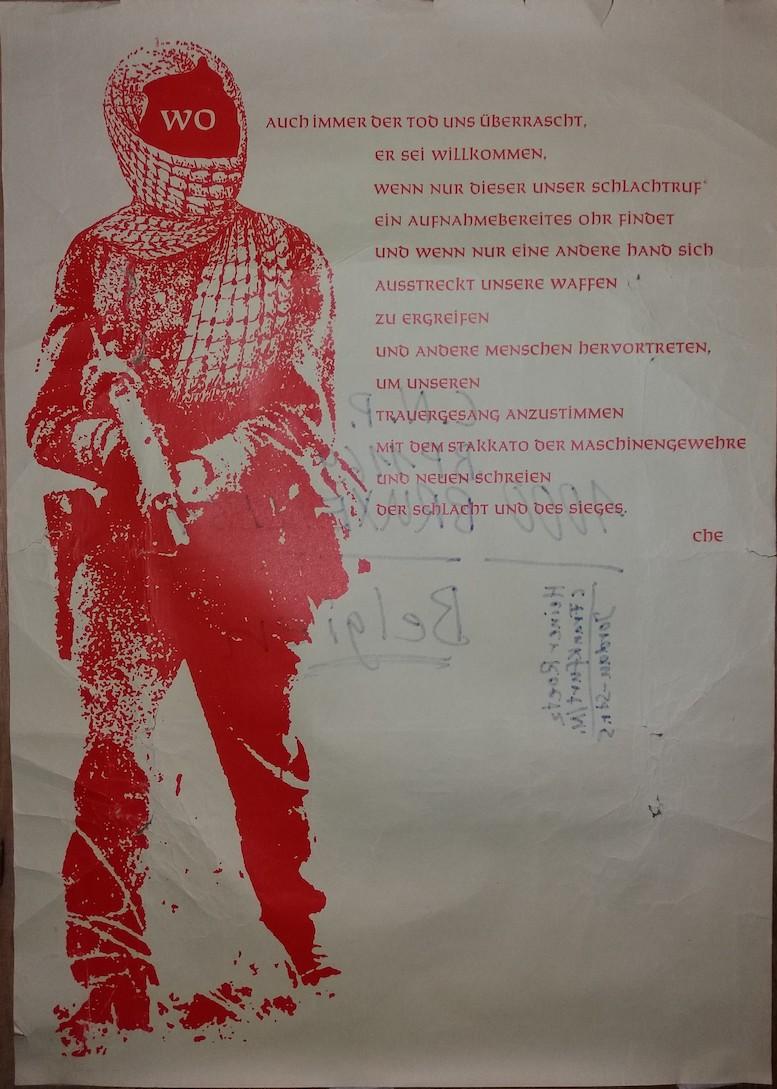 WO AUCH IMMER DER TOD UNS ÜBERRASCHT,
ER SEI WILLKOMMEN,
WENN NUR DIESER UNSER SCHLACHTRUF
EIN AUFNAHMEBEREITES OHR FINDET
UND WENN NUR EINE ANDERE HAND SICH
AUSSTRECKT UNSERE WAFFEN
ZU ERGREIFEN
UND ANDERE MENSCHEN HERVORTRETEN,
UM UNSEREN
TRAUERGESANG ANZUSTIMMEN
MIT DEM STAKKATO DER MASCHINENGEWEHRE
UND NEUEN SCHREIEN
DER SCHLACHT UND DES SIEGES.
che
1000
Belgien